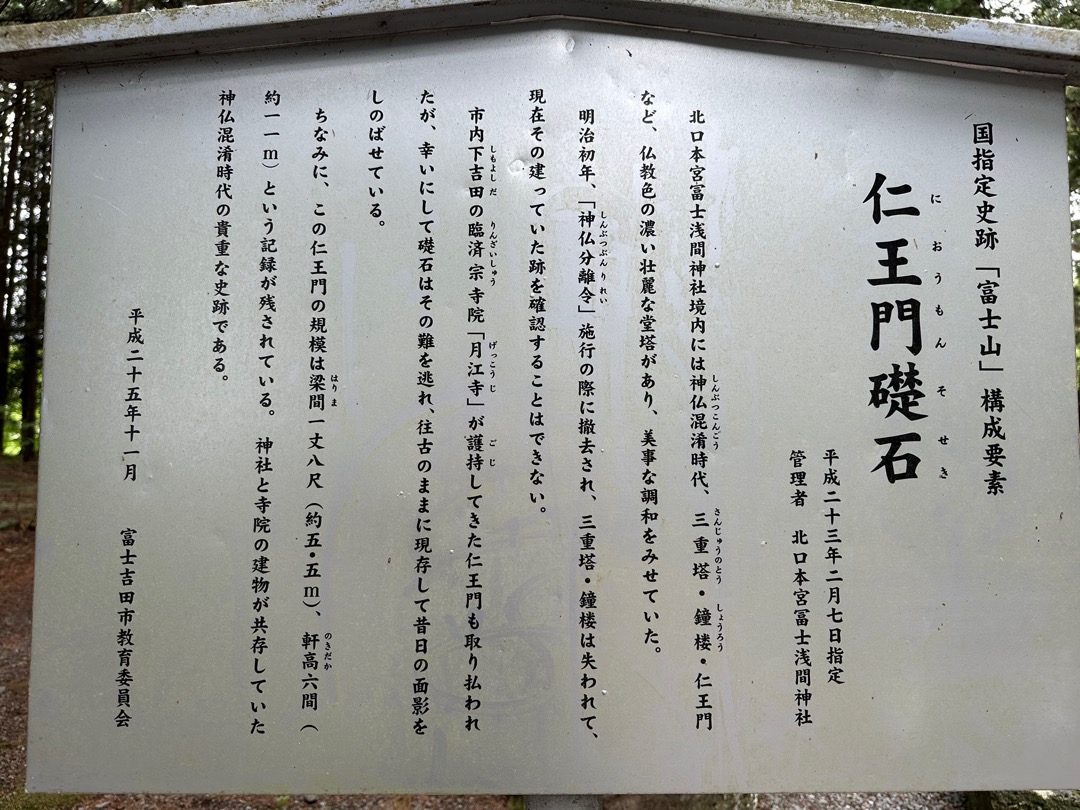 国指定史跡「富士山」構成要素
仁王門礎石
におうもんそせき
平成二十三年二月七日指定
管理者　北口本宮冨士浅間神社
北口本宮冨士浅間神社境内には神仏混淆時代、三重塔・鐘楼・仁王門
しんぶつこんごう　さんじゅうのとう　しょうろう
など、仏教色の濃い壮麗な堂塔があり、美事な調和をみせていた。
明治初年、「神仏分離令」施行の際に撤去され、三重塔・鐘楼は失われて、
しんぶつぶんりれい
現在その建っていた跡を確認することはできない。
市内下吉田の臨済宗寺院「月江寺」が護持してきた仁王門も取り払われ
しもよしだ　りんざいしゅう　げっこうじ　ごじ
たが、幸いにして礎石はその難を逃れ、往古のままに現存して昔日の面影を
しのばせている。
ちなみに、この仁王門の規模は梁間一丈八尺（約五・五ｍ）、軒高六間（
はりま　のきだか
約一一ｍ）という記録が残されている。神社と寺院の建物が共存していた
神仏混淆時代の貴重な史跡である。
平成二十五年十一月　富士吉田市教育委員会